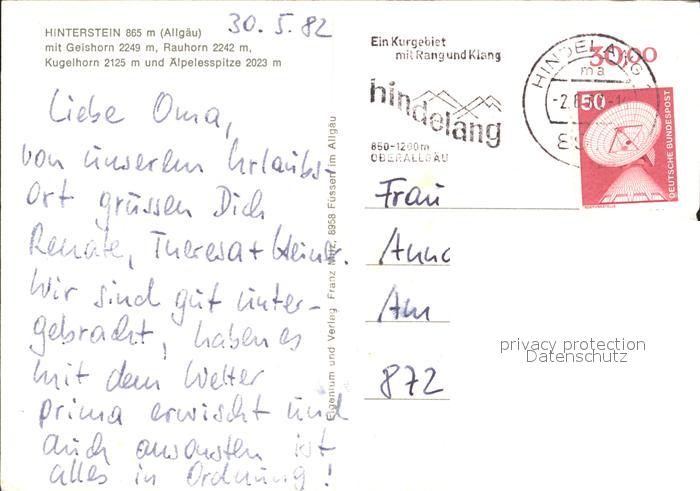 HINTERSTEIN 865 m (Allgäu)
mit Geishorn 2249 m, Rauhorn 2242 m,
Kugelhorn 2125 m und Älpelesspitze 2023 m
30. 5. 82
Liebe Oma,
von unserem Urlaubs-
Ort grüssen Dich
Renate, Theresa + Heiner.
Wir sind gut unter-
gebracht, haben es
mit dem Wetter
prima erwischt und
auch ansonsten ist
alles in Ordnung!
Eigentum und Verlag Franz Milz, 8958 Füssen im Allgäu
Ein Kurgebiet
mit Rang und Klang
hindelang
850-1200m
OBERALLGÄU
HINDELANG 1
ma
-2.
30.00
50
DEUTSCHE BUNDESPOST
Frau
Anna
Am
872
privacy protection
Datenschutz